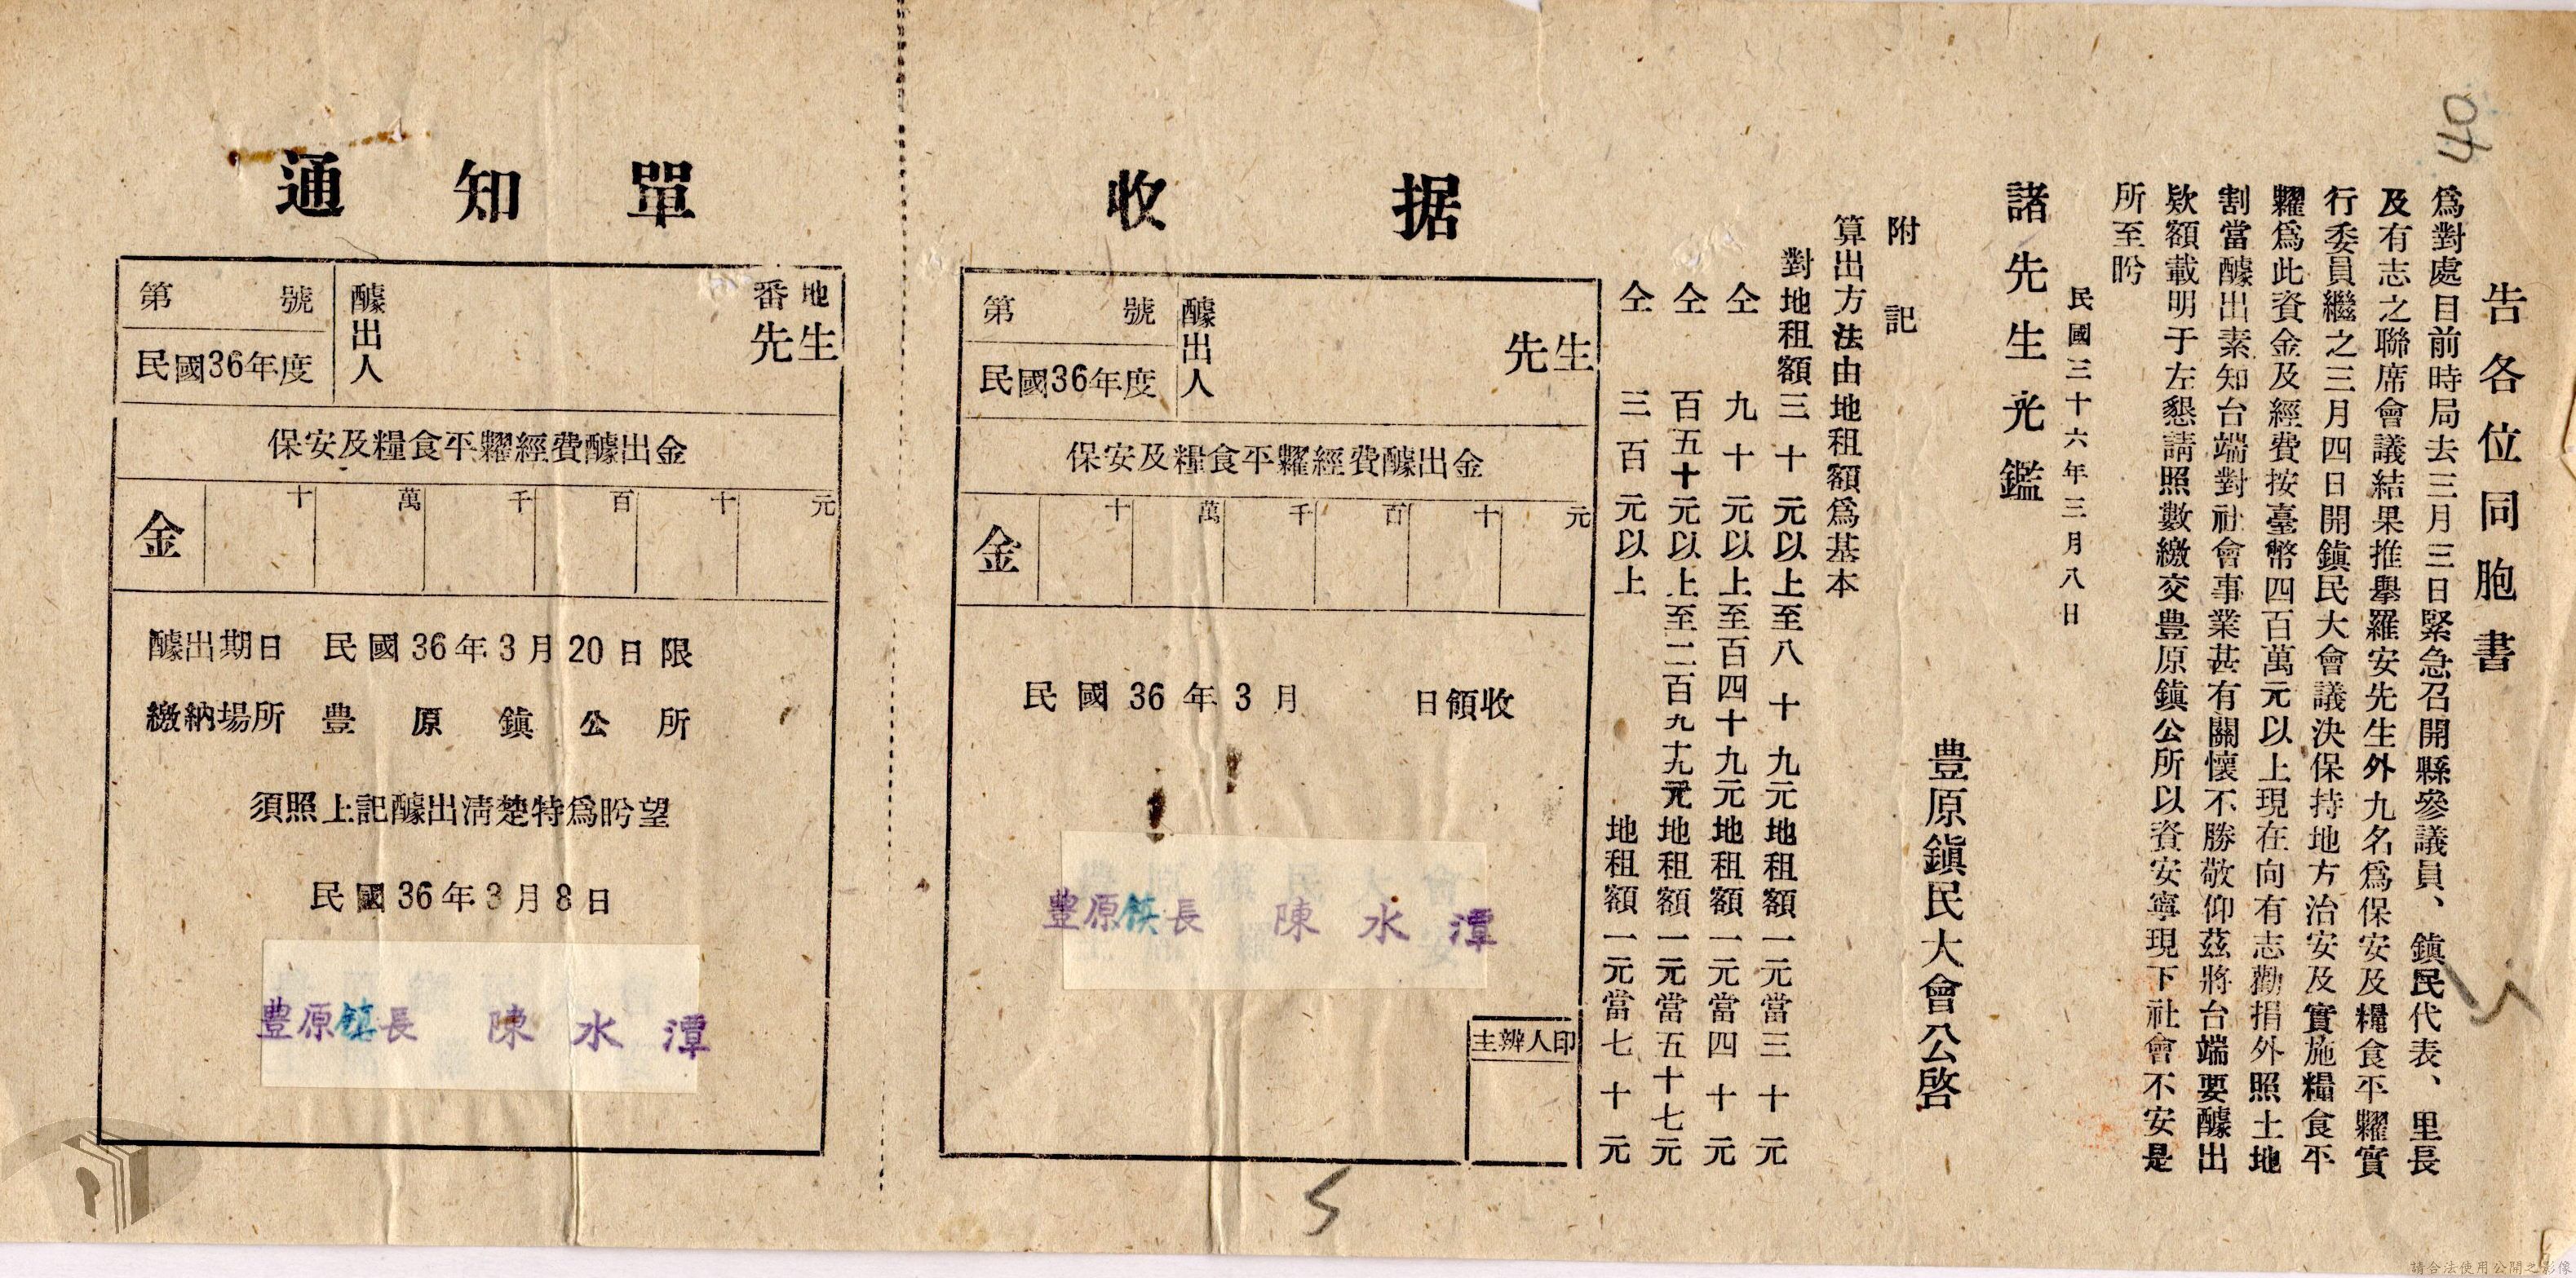 告各位同胞書
爲對處目前時局去三月三日緊急召開縣參議員、鎭民代表、里長
及有志之聯席會議結果推舉羅安先生外九名爲保安及糧食平糶實
行委員繼之三月四日開鎭民大會議決保持地方治安及實施糧食平
糶爲此資金及經費按臺幣四百萬元以上現在向有志勸捐外照土地
割當醵出素知台端對社會事業甚有關懷不勝敬仰茲將台端要醵出
欵額載明于左懇請照數繳交豊原鎭公所以資安寧現下社會不安是
所至盻
民國三十六年三月八日
諸先生光鑑
豊原鎭民大會公啓
附記
算出方法由地租額爲基本
對地租額三十元以上至八十九元地租額一元當三十元
仝九十元以上至百四十九元地租額一元當四十元
仝百五十元以上至二百九十九元地租額一元當五十七元
仝三百元以上地租額一元當七十元
收據
第 號
民國36年度
醵出人
先生
保安及糧食平糶經費醵出金
金 十 萬 千 百 十 元
民國36年3月 日領收
豊原鎮長 陳水潭
主辦人印
通知單
第 號
民國36年度
醵出人
番地
先生
保安及糧食平糶經費醵出金
金 十 萬 千 百 十 元
醵出期日 民國36年3月20日限
繳納場所 豊原鎭公所
須照上記醵出淸楚特爲盻望
民國36年3月8日
豊原鎮長 陳水潭
40
請合法使用公開之影像